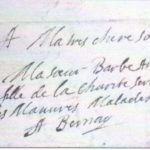 A Ma tres chere so
Ma sœur Barbe A
fille de la Charité ser
es Pauvres Malades
A Bernay